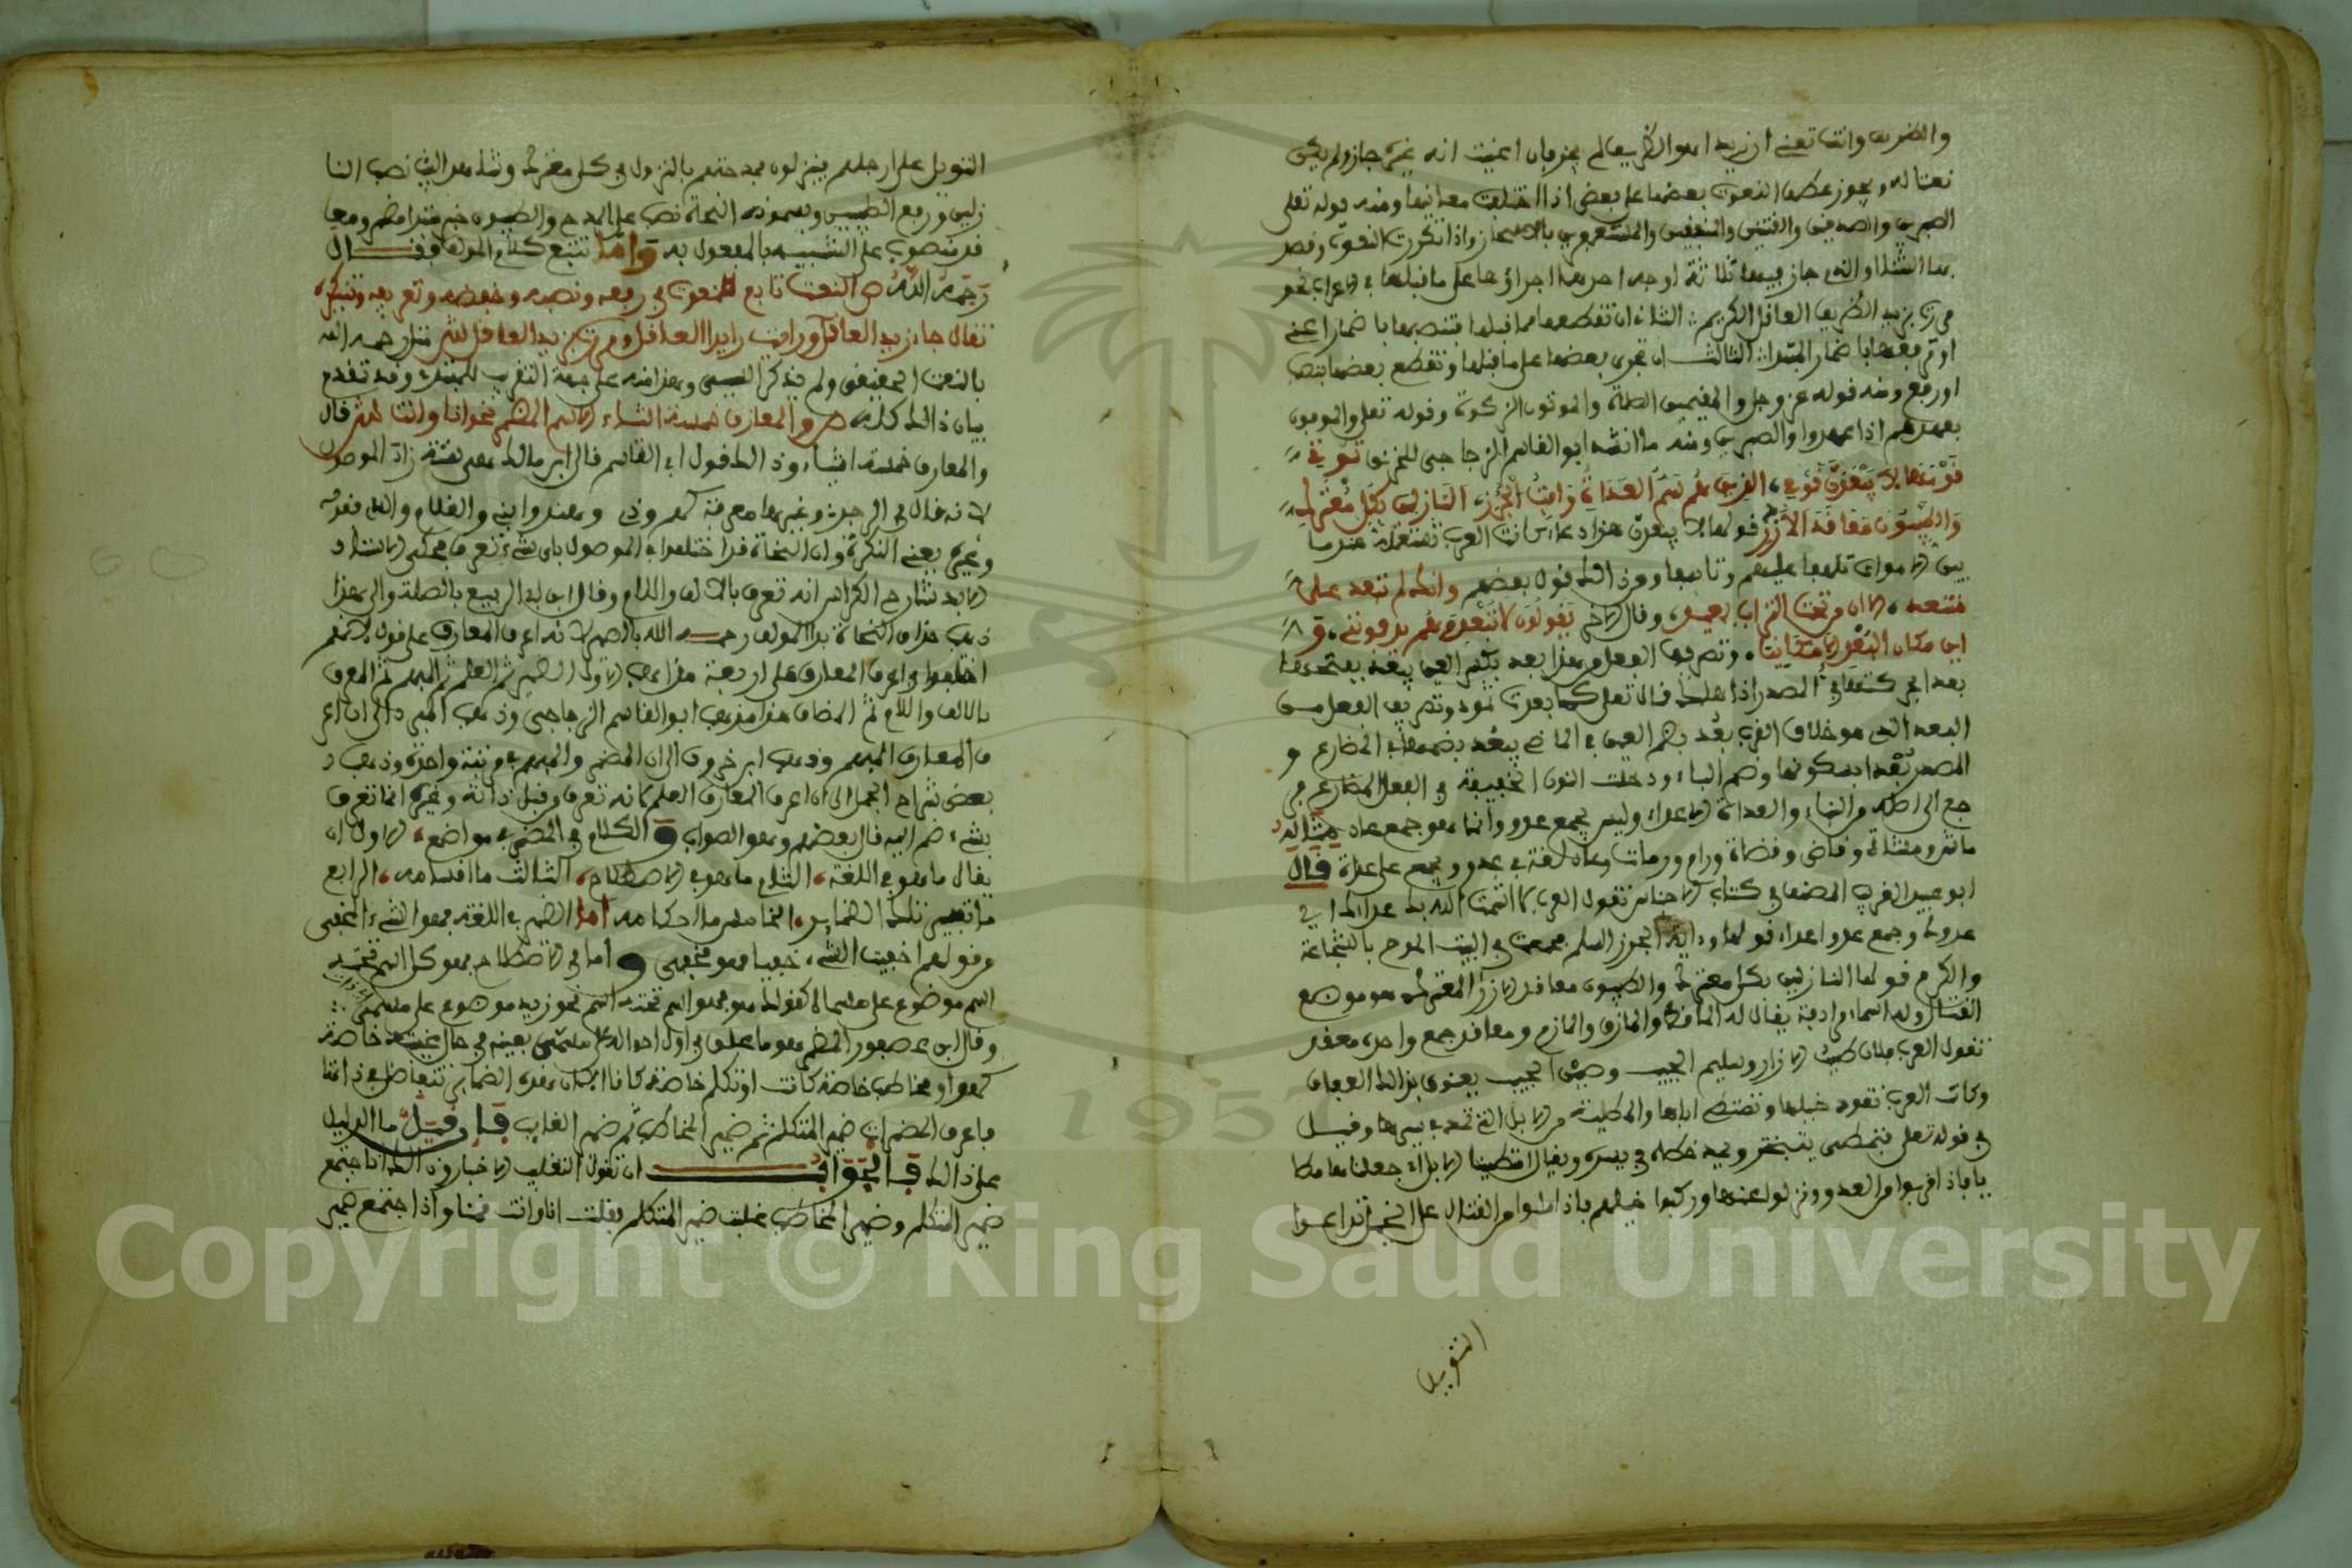 والظريف وانت تعني ان زيدا هو الظريف لم يجز فان اعنيت انه غيره جاز ولم يكن
نعتا له ويجوز عطف النعوت بعضها على بعض اذا اختلفت معانيها ومنه قوله تعلى
الصبرين والصدقين والقنتين والمنفقين والمستغفرين بالاسحار واذا تكررت النعوت وقصد
بها الثناء او الذم جاز فيها ثلاثة اوجه احدها اجراؤها على ما قبلها في الاعراب نحو
مررت بزيد الظريف العاقل الكريم الثاني ان تقطعها مما قبلها فتنصبها باضمار اعني
او ترفعها باضمار المبتدا الثالث ان تجري بعضها على ما قبلها وتقطع بعضها بنصب
او رفع ومنه قوله عز وجل والمقيمين الصلاة والموتون الزكوة وقوله تعلى والموفون
بعهدهم اذا عهدوا والصبرين ومنه ما انشد ابو القاسم الزجاجي للخرنق ترثي
قومها لا يبعدن قومي الذين هم سم العداة وافة الجزر النازلين بكل معترك
والطيبون معاقد الازر قولها لا يبعدن هذا دعاء كانت العرب تستعمله عند
بين الاموات تلهفا عليهم وتاسفا ومن ذلك قول بعضهم وانك لم تبعد على
متعهد الا ان من تحت التراب بعيد وقال الاخر يقولون لا تبعد وهم يدفونني و
اين مكان البعد الا مكانيا وتصريف الفعل من هذا بعد بكسر العين يبعد بفتحها
بعدا في المصدر اذا هلك قال تعلى كما بعدت ثمود وتصريف الفعل من
البعد الذي هو خلاف القرب بعد بضم العين في الماضي يبعد بضمها في المضارع و
المصدر بعدا بسكونها وضم الباء ودخلت النون الخفيفة في الفعل المضارع
جع الى اصله من البناء والعداة الاعداء وليس بجمع عدو وانما هو جمع عاد مثاله
ماش ومشاة وقاض وقضاة ورام ورماة وعاد لغة في عدو ويجمع على عداة قال
ابو عبيد الغريب المصنف في كتاب الاجناس تقول العرب اشمت الله بك عداك اي
عدوك وجمع عدو اعداء قولها وافة الجزر السلم جمعت في البيت المدح بالشجاعة
والكرم قولها النازلين بكل معترك والطيبون معاقد الازر المعترك هو موضع
القتال وله اسماء رادفة يقال له الماقط والمازق والمازم ومعاقد جمع واحده معقد
تقول العرب فلان طيب الازار وسليم الجيب وحسن الجيب يعنون بذلك العفاف
وكانت العرب تقود خيلها وتمتطي ابلها والمطية من الابل التي تمد في سيرها وقيل
في قوله تعلى يتمطى يتبختر ويمد خطاه في سيره ويقال امتطينا الابل اي جعلناها مطايا
يا فاذا قربوا من العدو ونزلوا عنها وركبوا خيلهم فاذا ملوا من القتال على الخيل تداعوا
النزيل
النزيل على ارجلهم ينزلون فمدحتهم بالنزول في كل معترك وشاهد البيت نصب النا
زلين ورفع الطيبين وبعض النحاة نصب على المدح والطيبون خبر مبتدا مضمر ومعا
قد منصوب على التشبيه بالمفعول به وانا نتبع كلام المولف فقال
رحمه الله ص النعت تابع للمنعوت في رفعه ونصبه وخفضه وتعريفه وتنكيره
تقال جاء زيد العاقل ورايت زيدا العاقل ومررت بزيد العاقل ش مثل رحمه الله
بالنعت الحقيقي ولم يذكر السببي وهذا منه على جهة التقريب للمبتدئ وقد تقدم
بيان ذلك كله ص والمعارف خمسة اشياء الاسم المضمر نحو انا وانت ش قال
والمعارف خمسة اشياء وذلك قول ابي القاسم قال ابن مالك هي ستة زاد الموصول
لانه قال في الرجز وغيرها معرفة كهم وذي وهند وابني والغلام والذي فقوله
وغيره يعني النكرة وان النحاة قد اختلفوا في الموصول باي شيء تعرف فحكى الاستاذ
الابذ شارح الكراس انه تعرف بالالف واللام وقال ابن ابي الربيع بالصلة والى هذا
ذهب حذاق النحاة بدا المولف رحمه الله بالضمير لانه اعرف المعارف على قول بعضهم
اختلفوا في اعرف المعارف على اربعة مذاهب الاول الضمير ثم العلم ثم المبهم ثم المعرف
بالالف واللام ثم المضاف هذا مذهب ابو القاسم الزجاجي وذهب المبرد الى ان اعر
ف المعارف المبهم وذهب ابن خروف الى ان المضمر والمبهم في مرتبة واحدة وذهب
بعض شراح الجمل الى ان اعرف المعارف العلم لانه تعرف من قبل ذاته وغيره انما تعرف
بشيء ضم اليه قال بعضهم وهو الصواب والكلام في المضمر في مواضع الاول ان
يقال ما هو في اللغة الثاني ما هو في الاصطلاح الثالث ما اقسامه الرابع
ما تفسير تلك الضماير الخامس ما احكامه اما الضمير في اللغة فهو الشيء المخفي
وقولهم اخفيت الشيء خفيا فهو مخفي واما في الاصطلاح فهو كل اسم تحته
اسم موضوع على مسمى كقولك هو فهو اسم تحته اسم نحو زيد موضوع على مسمى
وقال ابن عصفور المضمر هو ما علق في اول احواله على مسمى بعينه في حال غيبة خاصة
كهو او مخاطب خاصة كانت او تكلم خاصة كانا ان هذه الضماير تتفاضل في ذاتها
فاعرف المضمرات ضمير المتكلم ثم ضمير المخاطب ثم ضمير الغايب فان قيل ما الدليل
على ذلك فالجواب ان تقول التغليب الاخبار وذلك اذا اجتمع
ضمير المتكلم وضمير المخاطب غلبت ضمير المتكلم فقلت انا وانت قمنا واذا اجتمع ضمير
Copyright © King Saud University
1957